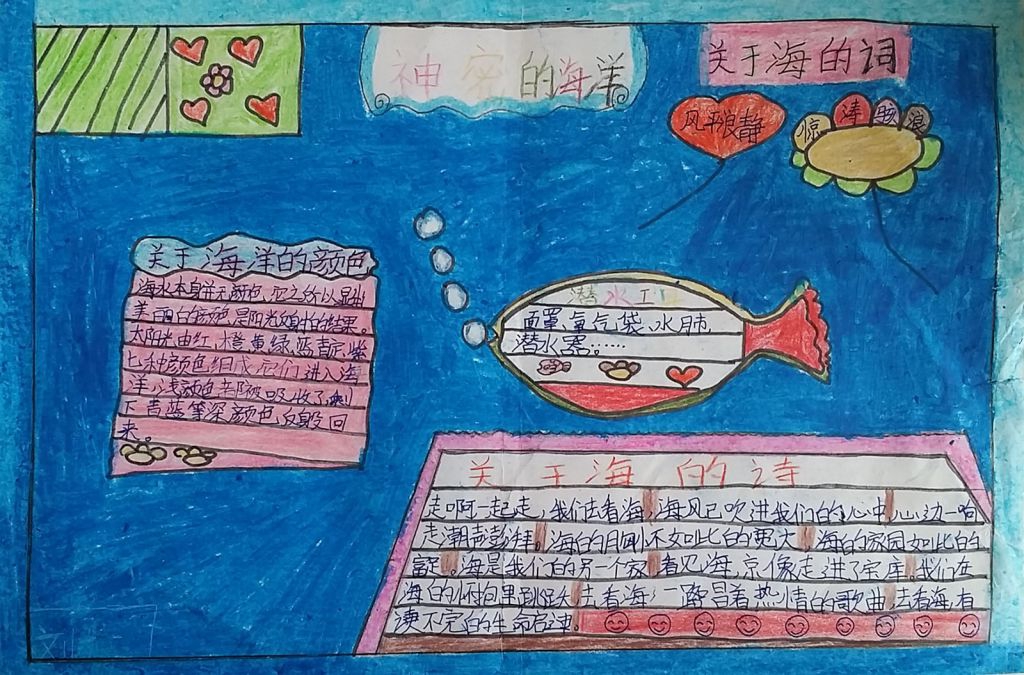 神密的海洋
关于海的词
风平浪静
惊涛骇浪
关于海洋的颜色
海水本身并无颜色,它之所以显出
美丽的颜色是阳光的结果。
太阳光由红、橙、黄、绿、蓝、靛、紫
七种颜色组成,它们进入海
洋,浅颜色都被吸收了,剩
下青蓝等深颜色反射回
来。
潜水工
面罩、氧气袋、水肺、
潜水器……
关于海的诗
走啊一起走,我们去看海,海风已吹进我们的心中,心边一响
走潮声澎拜。海的月如此的更大,海的家园如此的
海是我们的另一个家,看见海,京像走进了宝库。我们在
海的怀抱里跳跃,去看海,一路冒着热情的歌曲,去看海,有
读不完的生命